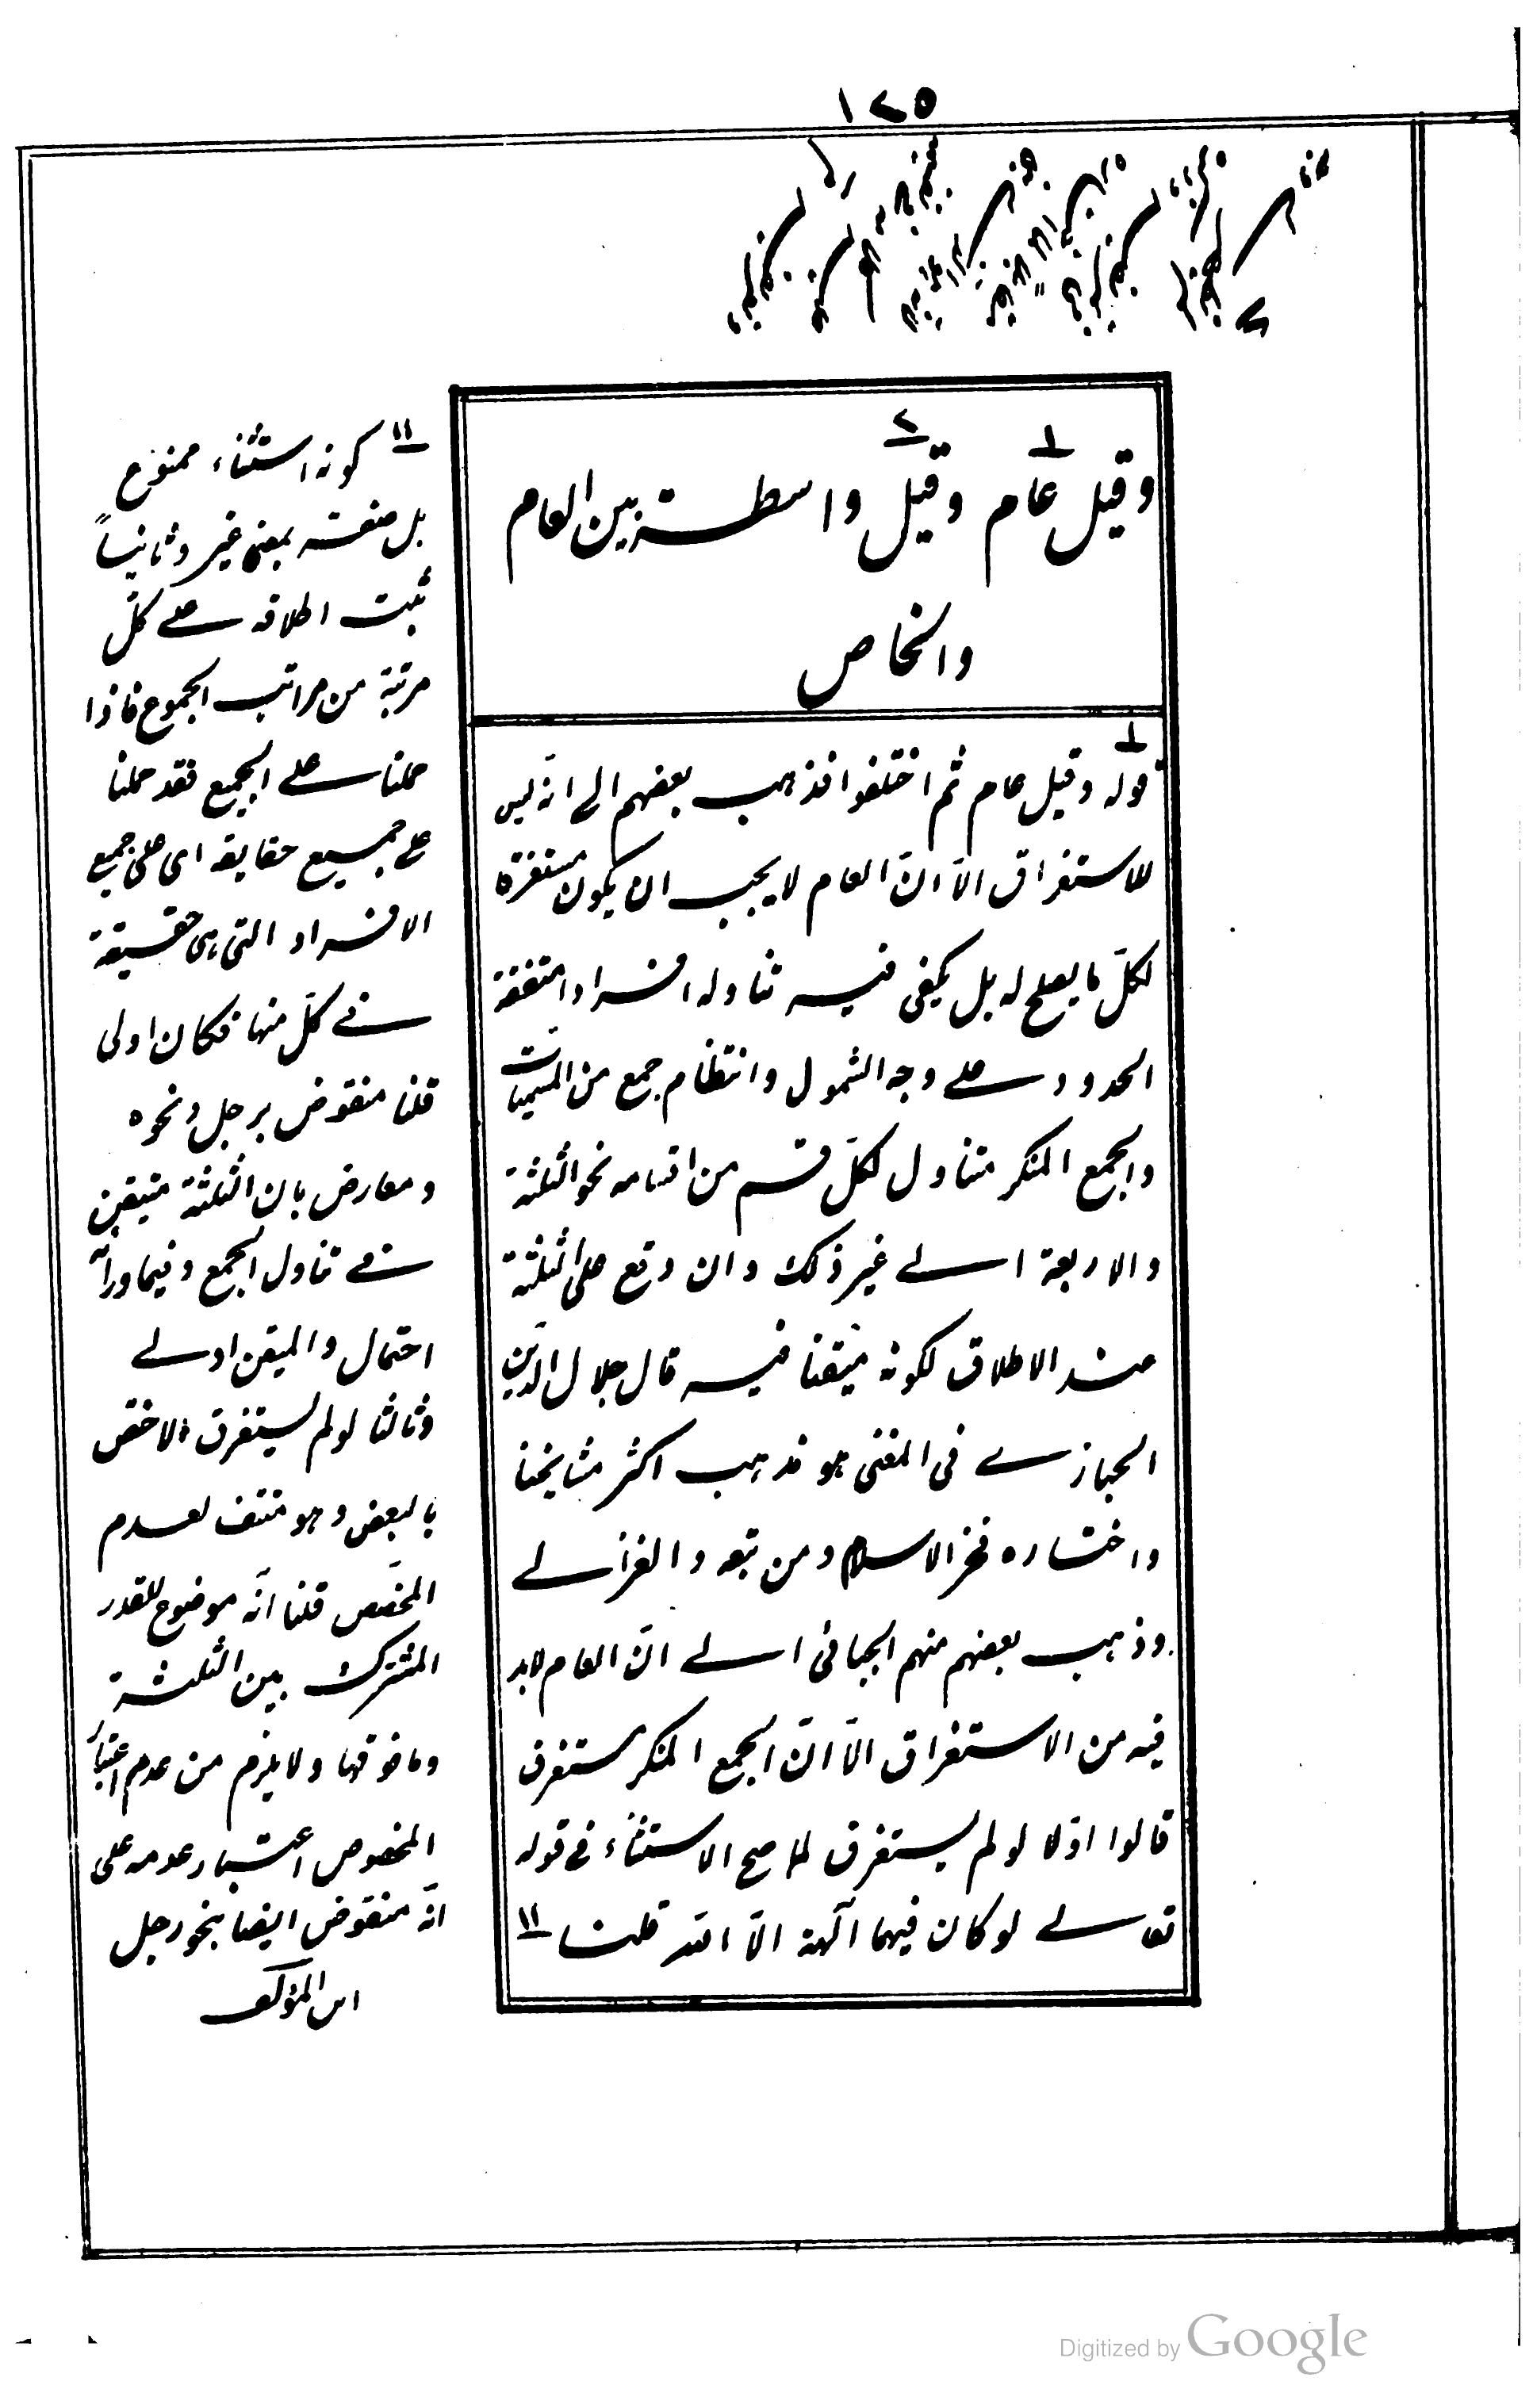 ١٢٥
وقيل عام وقيل واسطة بين العام
والخاص
قوله وقيل عام ثم اختلفوا فذهب بعضهم الى انّه ليس
للاستغراق الاّ انّ العام لا يجب ان يكون مستغرقا
لكلّ ما يصلح له بل يكفى فيه تناوله افرادا متفقة
الحدود على وجه الشمول وانتظام جمع من المسميّات
والجمع المنكر متناول لكلّ قسم من اقسامه نحو الثلثة
والاربعة الى غير ذلك وان وقع على الثلثة
عند الاطلاق لكونه متيقنا فيه قال جلال الدّين
الخبازى فى المغنى هو مذهب اكثر مشايخنا
واختاره فخر الاسلام ومن تبعه والغزالى
وذهب بعضهم منهم الجبائى الى انّ العام لابد
فيه من الاستغراق الاّ انّ الجمع المنكر مستغرق
قالوا اوّلا لو لم يستغرق لما صح الاستثناء فى قوله
تعالى لو كان فيهما آلهة الاّ اللّه قلنا ١١
١١ كونه استثناء ممنوع
بل صفة بمعنى غير وثانياً
ثبت اطلاقه على كلّ
مرتبة من مراتب الجموع فاذا
حملنا على الجميع فقد حملنا
على جميع حقايقه اى على جميع
الافراد التى هى حقيقة
فى كلّ منها فكان اولى
قلنا منقوض برجل ونحوه
ومعارض بان الثلثة متيقن
فى تناول الجمع وفيما ورائه
احتمال والمتيقن اولى
وثالثا لو لم يستغرق لاختص
بالبعض وهو منتف لعدم
المخصّص قلنا انّه موضوع للقدر
المشترك بين الثلثة
وما فوقها ولا يلزم من عدم اعتبار
الخصوص اعتبار عدمه على
انّه منقوض ايضا بنحو رجل
من المؤلف